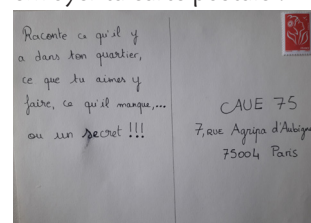 Raconte ce qu'il y
a dans ton quartier,
ce que tu aimes y
faire, ce qu'il manque,...
ou un secret !!!
CAUE 75
7, rue Agripa d'Aubigné
75004 Paris